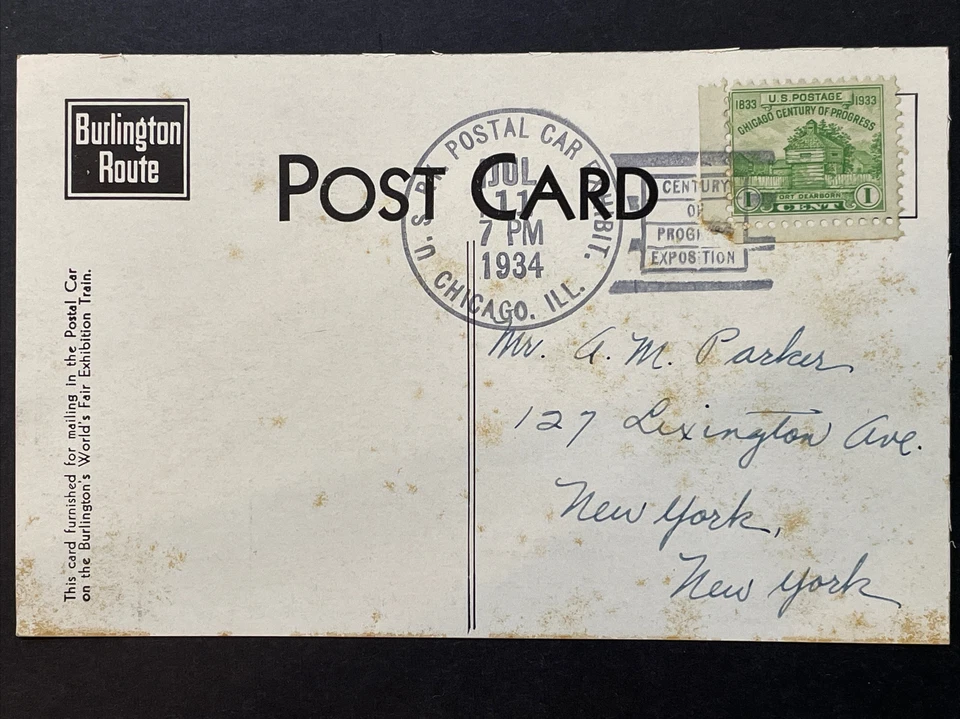 Burlington
Route
POST CARD
This card furnished for mailing in the Postal Car
on the Burlington's World's Fair Exhibition Train.
U.S. POSTAL CAR EXHIBIT.
JUL
11
7 PM
1934
CHICAGO, ILL.
CENTURY
OF
PROGRESS
EXPOSITION
1833 U.S. POSTAGE 1933
CHICAGO CENTURY OF PROGRESS
FORT DEARBORN
1 CENT 1
Mr. A. M. Parker
127 Lexington Ave.
New York,
New York